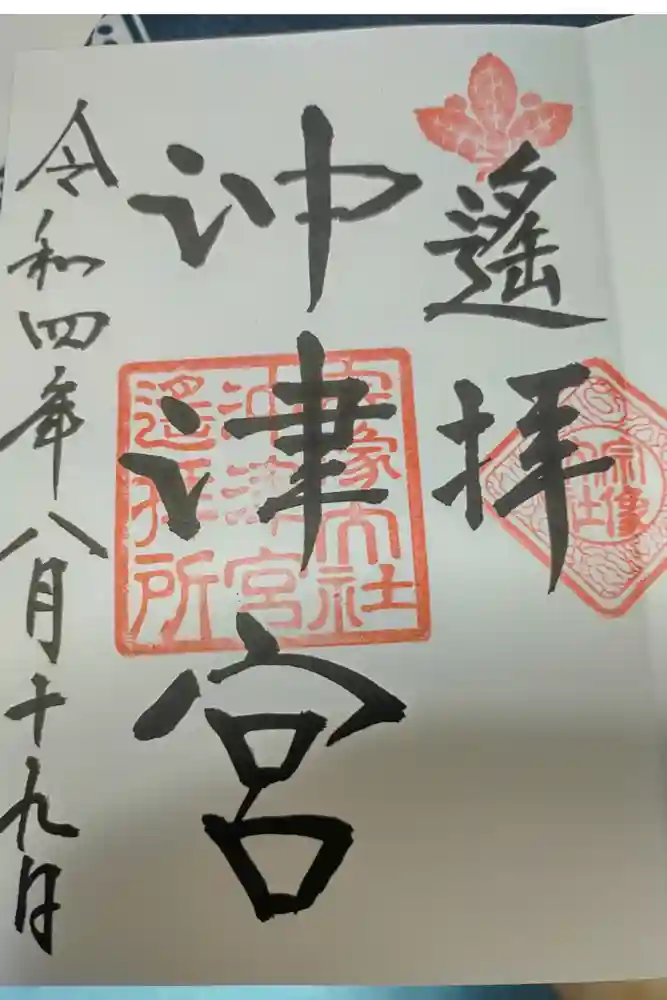 遙拝
沖津宮
令和四年八月十九日
宗像大社
沖津宮
遙拝所
宗像
大社